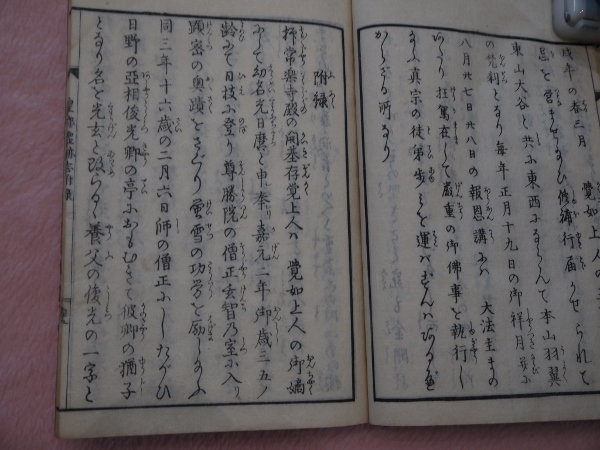 戌年の春三月 覚如上人の
忌と営ませたまひ修補行届かせられて
東山大谷と共に東西にならんで本山羽翼
の梵刹となり毎年正月十九日の御祥月并に
八月廿七日廿八日の報恩講には 大法主まの
あたり 在して厳重の御佛事を執行し
たまふ真宗の徒弟歩みを運はずんハあるべ
からざる所なり
附録
抑常楽寺殿の開基存覚上人ハ 覚如上人の御嫡
にして幼名光日麿と申奉る嘉元二年御歳三五ノ
齢にて日枝に登り尊勝院の僧正玄智乃室に入り
顕密の奥蹟をさぐり蛍雪の功労を励したまふ
同三年十六歳の二月六日師の僧正にしたがひ
日野の亜相俊光卿の亭におもむきて彼卿の猶子
となり名を光玄と改らる養父の俊光の一字と